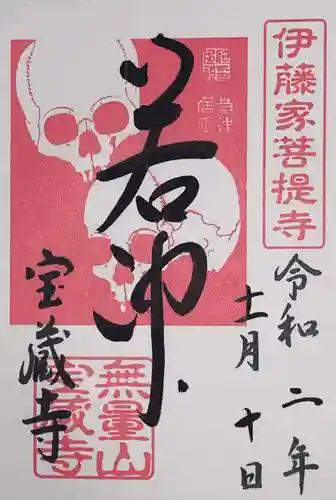 伊藤家菩提寺
令和二年
十二月十日
若冲
宝蔵寺
無量山
宝蔵寺